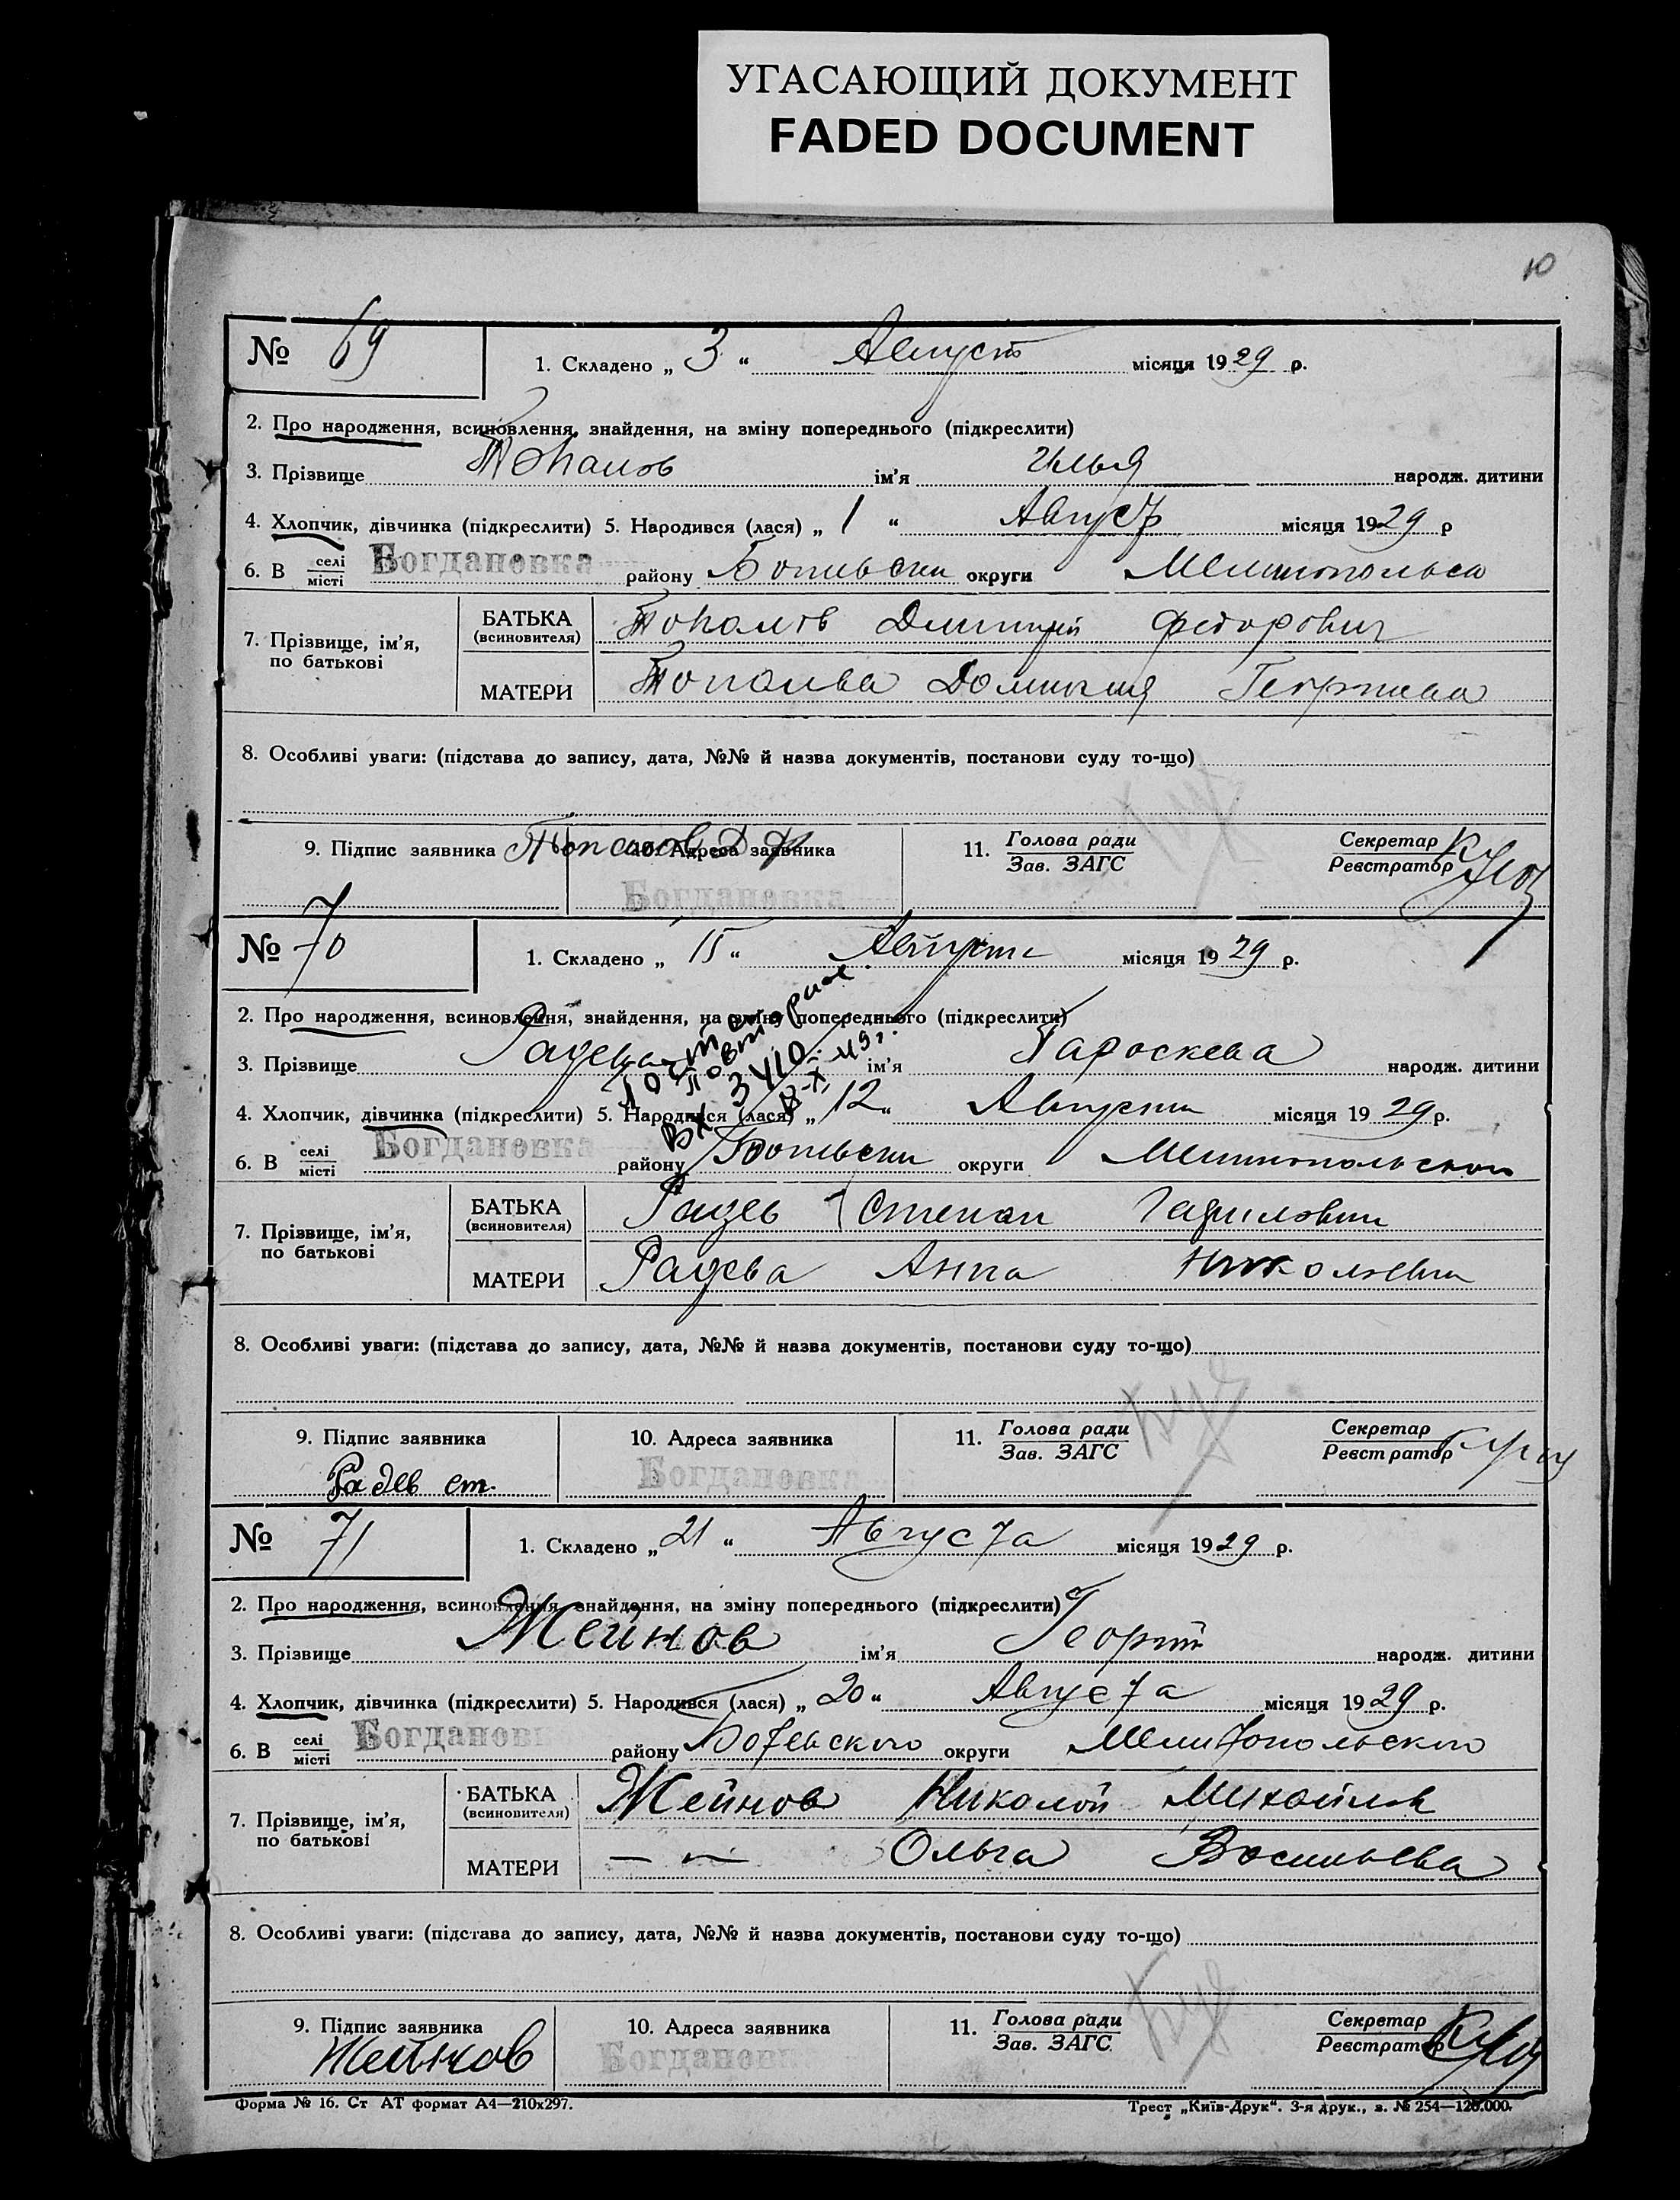 УГАСАЮЩИЙ ДОКУМЕНТ
FADED DOCUMENT
10
№ 69 1. Складено „ 3 “ Август місяця 1929 р.
2. Про народження, всиновлення, знайдення, на зміну попереднього (підкреслити)
3. Прізвище Топалов ім'я Илья народж. дитини
4. Хлопчик, дівчинка (підкреслити) 5. Народився (лася) „ 1 “ Август місяця 1929 р
6. В селі місті Богдановка району округи
7. Прізвище, ім'я, по батькові
БАТЬКА (всиновителя) Топалов Дмитрий Федорович
МАТЕРИ
8. Особливі уваги: (підстава до запису, дата, №№ й назва документів, постанови суду то-що)
9. Підпис заявника Топалов Д Ф 10. Адреса заявника 11. Голова ради Зав. ЗАГС Секретар Реєстратор
Богдановка
№ 70 1. Складено „ 15 “ Августа місяця 1929 р.
2. Про народження, всиновлення, знайдення, на зміну попереднього (підкреслити)
3. Прізвище Радева ім'я Пароскева народж. дитини
4. Хлопчик, дівчинка (підкреслити) 5. Народився (лася) „ 12 “ Августа місяця 1929 р.
6. В селі місті Богдановка району округи
7. Прізвище, ім'я, по батькові
БАТЬКА (всиновителя) Радев Степан
МАТЕРИ Радева Анна
8. Особливі уваги: (підстава до запису, дата, №№ й назва документів, постанови суду то-що)
9. Підпис заявника 10. Адреса заявника 11. Голова ради Зав. ЗАГС Секретар Реєстратор
Радев ст. Богдановка
№ 71 1. Складено „ 21 “ Августа місяця 1929 р.
2. Про народження, всиновлення, знайдення, на зміну попереднього (підкреслити)
3. Прізвище Жейнов ім'я Георгий народж. дитини
4. Хлопчик, дівчинка (підкреслити) 5. Народився (лася) „ 20 “ Августа місяця 1929 р.
6. В селі місті Богдановк району Ботевского округи Мелитопольского
7. Прізвище, ім'я, по батькові
БАТЬКА (всиновителя) Жейнов Николай
МАТЕРИ — „ — Ольга Васильева
8. Особливі уваги: (підстава до запису, дата, №№ й назва документів, постанови суду то-що)
9. Підпис заявника 10. Адреса заявника 11. Голова ради Зав. ЗАГС Секретар Реєстратор
Жейнов Богдановк
Форма № 16. Ст АТ формат А4—210х297. Трест „Київ-Друк“. 3-я друк., з. № 254—125.000.